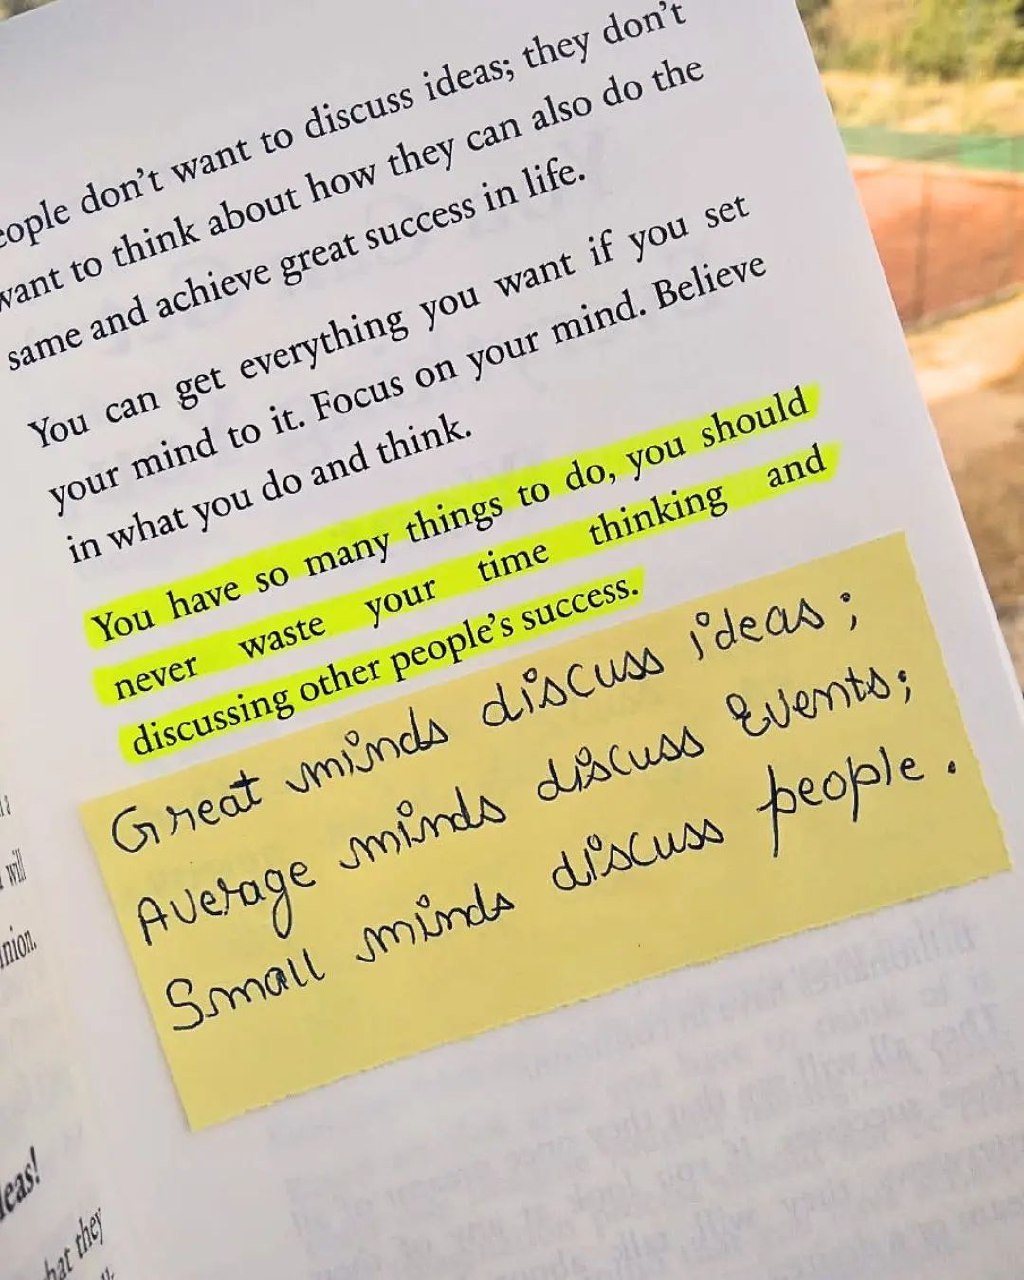 people don't want to discuss ideas; they don't
want to think about how they can also do the
same and achieve great success in life.
You can get everything you want if you set
your mind to it. Focus on your mind. Believe
in what you do and think.
You have so many things to do, you should
never waste your time thinking and
discussing other people's success.
Great minds discuss ideas;
Average minds discuss Events;
Small minds discuss people.
will